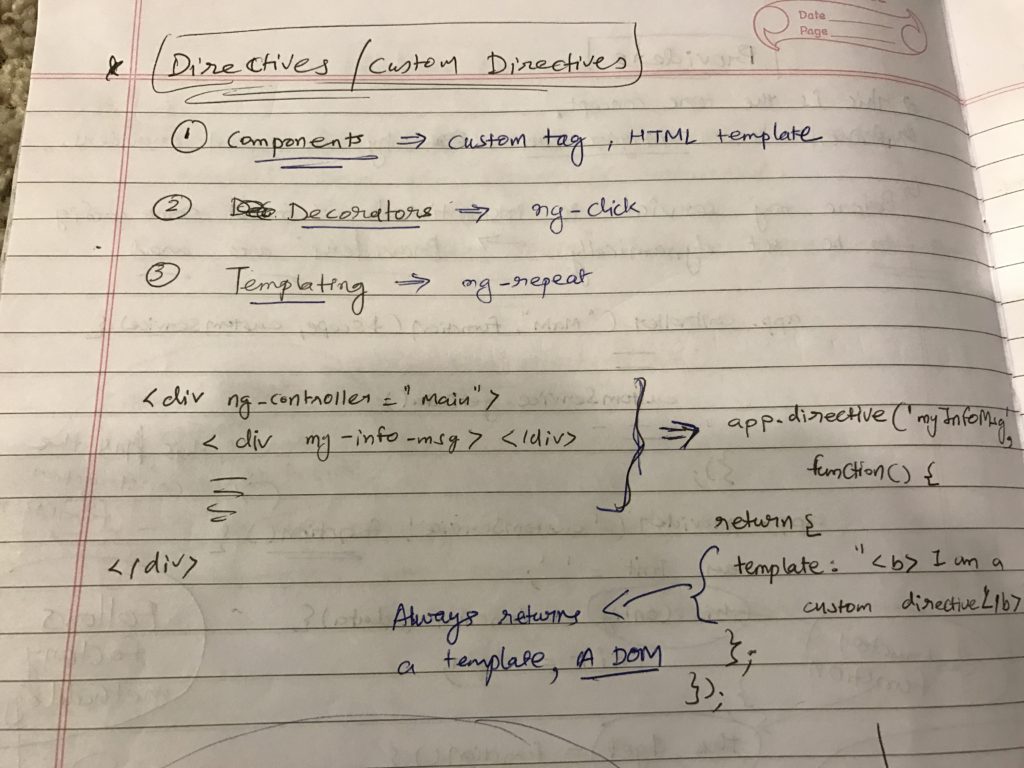 Date
Page
* Directives / Custom Directives
① Components ⇒ custom tag, HTML template
② Decorators ⇒ ng-click
③ Templating ⇒ ng-repeat
<div ng-controller = "main">
< div my-info-msg> </div>
</div>
app.directive('myInfoMsg',
function() {
return {
template: "<b> I am a
custom directive</b>
};
});
Always returns
a template, A DOM